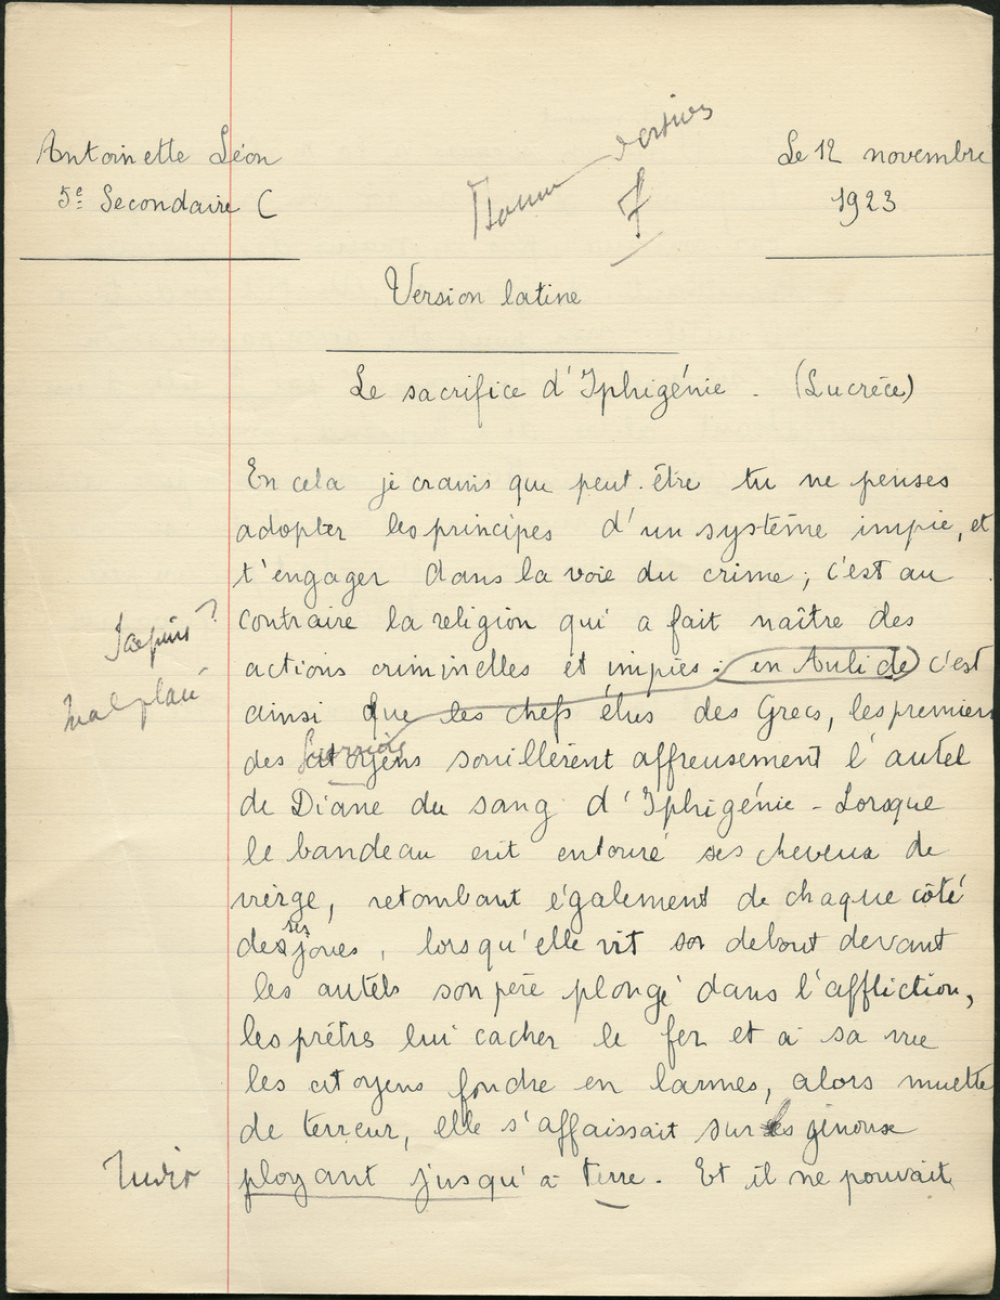 Antoinette Léon
5e Secondaire C
Bonne version
7
Le 12 novembre
1923
Version latine
Le sacrifice d'Iphigénie. (Lucrèce)
En cela je crains que peut-être tu ne penses
adopter les principes d'un système impie, et
t'engager dans la voie du crime ; c'est au
contraire la religion qui a fait naître des
actions criminelles et impies : en Aulide c'est
mal placé
ainsi que les chefs élus des Grecs, les premiers
des citoyens souillèrent affreusement l'autel
de Diane du sang d'Iphigénie - Lorsque
le bandeau eut entouré ses cheveux de
vierge, retombant également de chaque côté
de ses joues, lorsqu'elle vit debout devant
les autels son père plongé dans l'affliction,
les prêtres lui cacher le fer et à sa vue
les citoyens fondre en larmes, alors muette
de terreur, elle s'affaissait sur les genoux
ployant jusqu'à terre. Et il ne pouvait